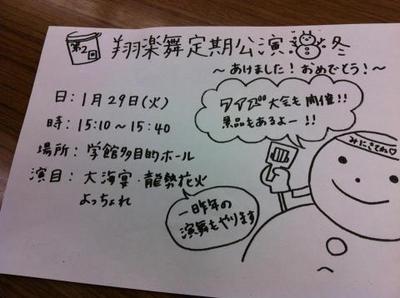 第2回
翔楽舞定期公演 冬
～あけました！おめでとう！～
日：1月29日(火)
時：15:10～15:40
場所：学館多目的ホール
演目：大海宴・龍勢花火
よっちょれ
大会も開催!!
景品もあるよー!!
みにきてね♡
一昨年の
演舞もやります